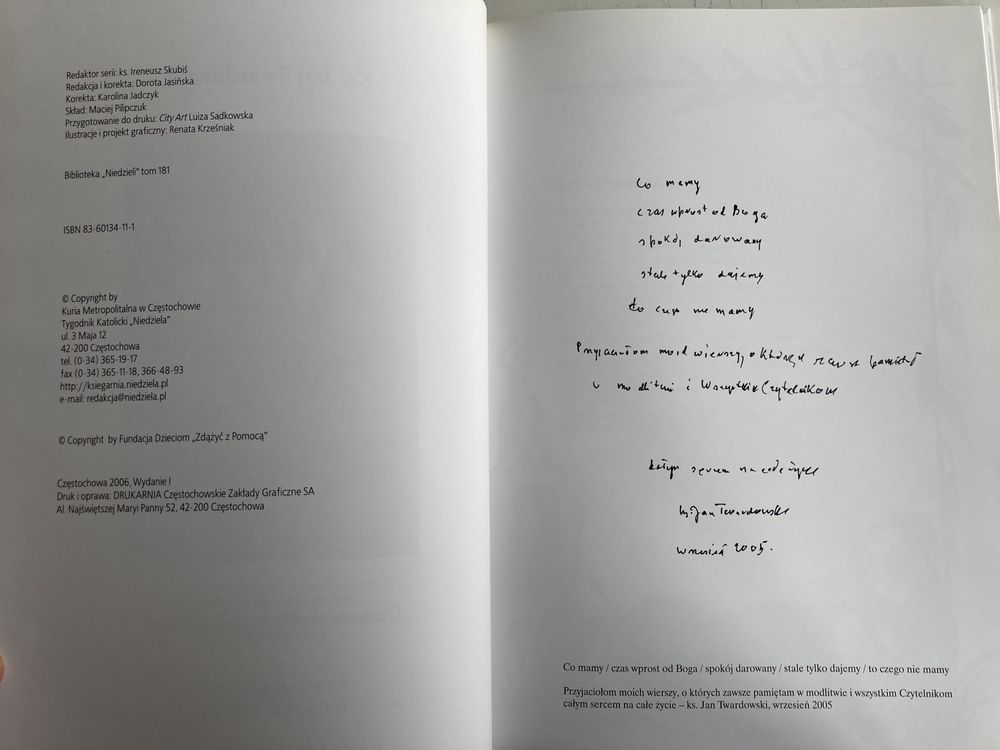 Redaktor serii: ks. Ireneusz Skubiś
Redakcja i korekta: Dorota Jasińska
Korekta: Karolina Jadczyk
Skład: Maciej Pilipczuk
Przygotowanie do druku: City Art Luiza Sadkowska
Ilustracje i projekt graficzny: Renata Krześniak
Biblioteka „Niedzieli” tom 181
ISBN 83-60134-11-1
© Copyright by
Kuria Metropolitalna w Częstochowie
Tygodnik Katolicki „Niedziela”
ul. 3 Maja 12
42-200 Częstochowa
tel. (0-34) 365-19-17
fax (0-34) 365-11-18, 366-48-93
http://ksiegarnia.niedziela.pl
e-mail: redakcja@niedziela.pl
© Copyright by Fundacja Dzieciom „Zdążyć z Pomocą”
Częstochowa 2006, Wydanie I
Druk i oprawa: DRUKARNIA Częstochowskie Zakłady Graficzne SA
Al. Najświętszej Maryi Panny 52, 42-200 Częstochowa
Co mamy
czas wprost od Boga
spokój darowany
stale tylko dajemy
to czego nie mamy
Przyjaciołom moich wierszy, o których zawsze pamiętam
w modlitwie i wszystkim Czytelnikom
całym sercem na całe życie
ks. Jan Twardowski
wrzesień 2005.
Co mamy / czas wprost od Boga / spokój darowany / stale tylko dajemy / to czego nie mamy
Przyjaciołom moich wierszy, o których zawsze pamiętam w modlitwie i wszystkim Czytelnikom
całym sercem na całe życie – ks. Jan Twardowski, wrzesień 2005